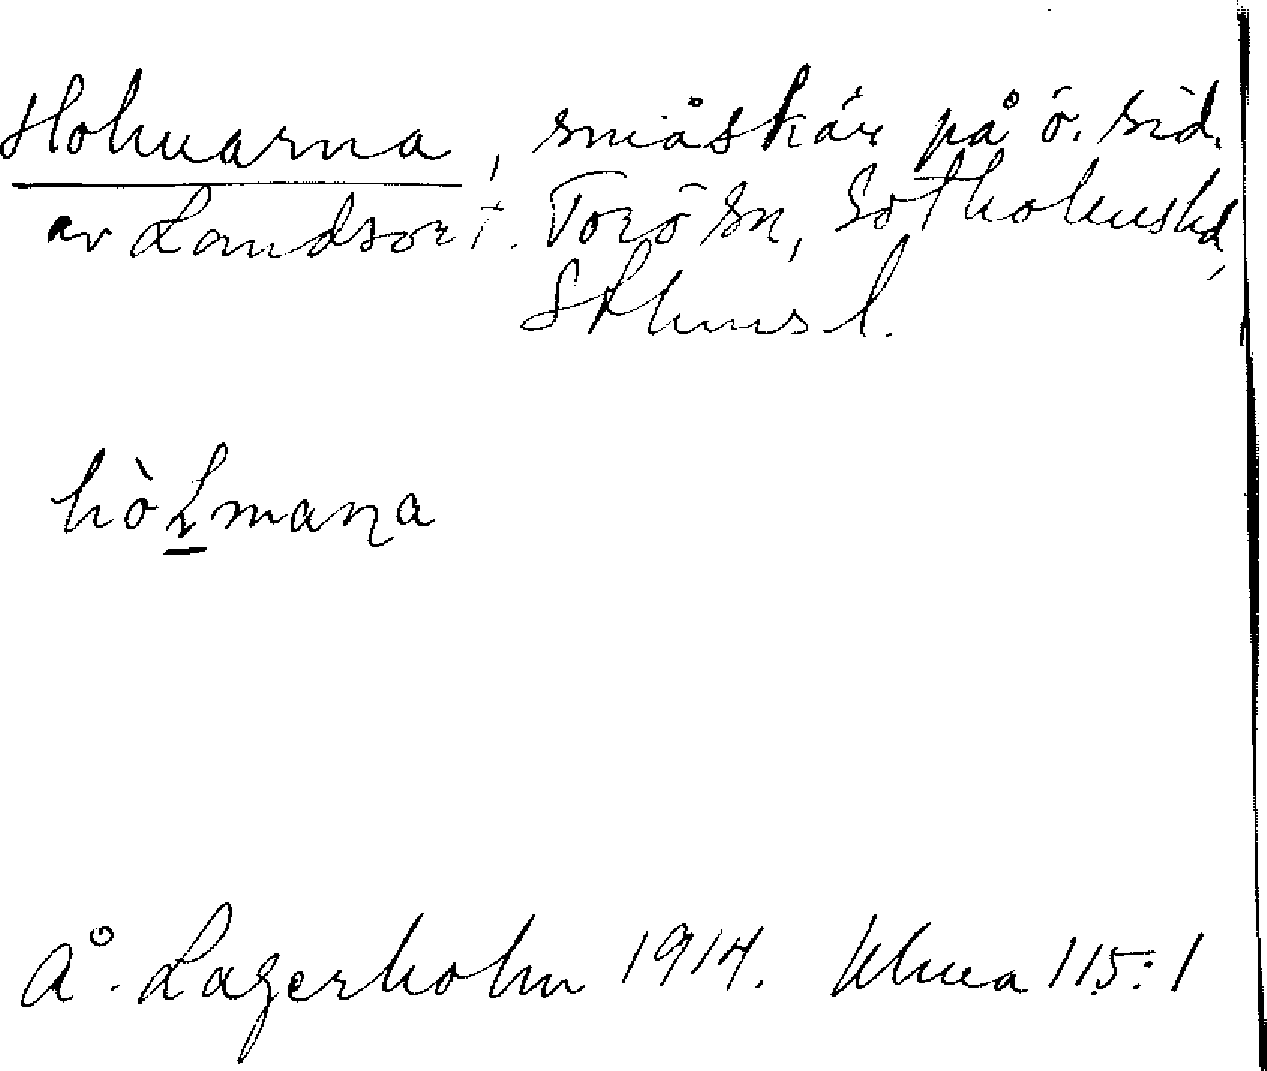 Holmarna, småskär på ö. sid.
av Landsort. Torö sn, Sotholms hd,
Sthlms l.
hòɫmaṇa
Å. Lagerholm 1914. Ulma 115:1